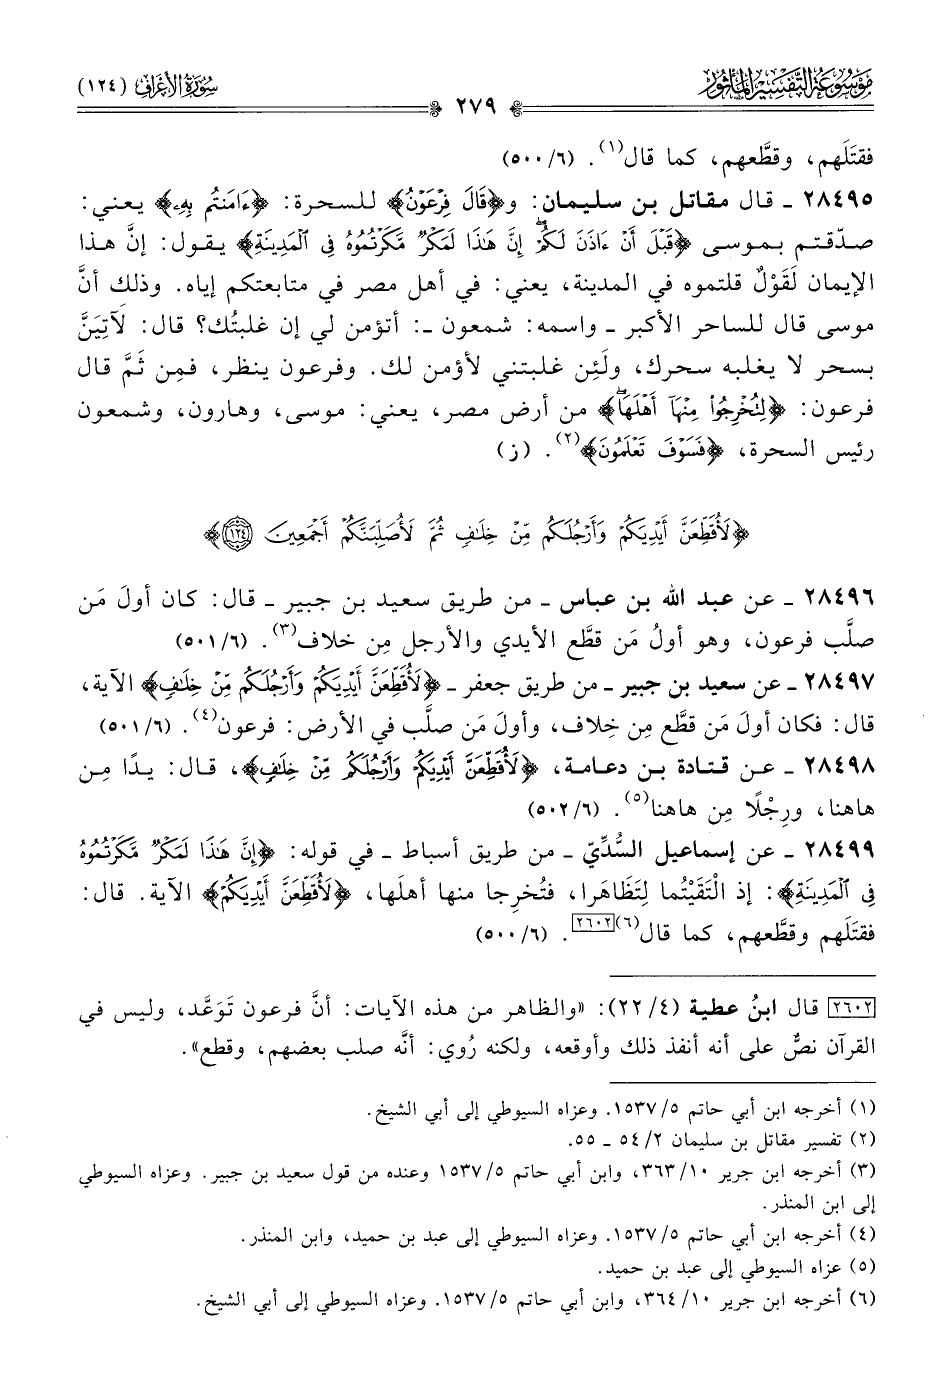 مَوْسُوعَةُ التَّفْسِيْرِ المَأْثُورِ
سُورَةُ الأَعْرَافِ (١٢٤)
٢٧٩
فقتَلَهم، وقطَّعهم، كما قال(١). (٥٠٠/٦)
٢٨٤٩٥ ـ قال مقاتل بن سليمان: و﴿قَالَ فِرْعَوْنُ﴾ للسحرة: ﴿ءَامَنتُم بِهِۦ﴾ يعني:
صدّقتم بموسى ﴿قَبْلَ أَنْ ءَاذَنَ لَكُمْۖ إِنَّ هَٰذَا لَمَكْرٌ مَّكَرْتُمُوهُ فِى ٱلْمَدِينَةِ﴾ يقول: إنَّ هذا
الإيمان لَقَوْلٌ قلتموه في المدينة، يعني: في أهل مصر في متابعتكم إياه. وذلك أنَّ
موسى قال للساحر الأكبر ـ واسمه: شمعون ـ: أتؤمن لي إن غلبتُك؟ قال: لَآتِيَنَّ
بسحر لا يغلبه سحرك، ولَئِن غلبتني لأؤمن لك. وفرعون ينظر، فمِن ثَمَّ قال
فرعون: ﴿لِتُخْرِجُوا۟ مِنْهَآ أَهْلَهَاۖ﴾ من أرض مصر، يعني: موسى، وهارون، وشمعون
رئيس السحرة، ﴿فَسَوْفَ تَعْلَمُونَ﴾(٢). (ز)
﴿لَأُقَطِّعَنَّ أَيْدِيَكُمْ وَأَرْجُلَكُم مِّنْ خِلَٰفٍ ثُمَّ لَأُصَلِّبَنَّكُمْ أَجْمَعِينَ ١٢٤﴾
٢٨٤٩٦ ـ عن عبد الله بن عباس ـ من طريق سعيد بن جبير ـ قال: كان أولَ مَن
صلَّب فرعون، وهو أولُ مَن قطَّع الأيدي والأرجل مِن خلاف(٣). (٥٠١/٦)
٢٨٤٩٧ ـ عن سعيد بن جبير ـ من طريق جعفر ـ ﴿لَأُقَطِّعَنَّ أَيْدِيَكُمْ وَأَرْجُلَكُم مِّنْ خِلَٰفٍ﴾ الآية،
قال: فكان أولَ مَن قطَّع مِن خِلاف، وأولَ مَن صلَّب في الأرض: فرعون(٤). (٥٠١/٦)
٢٨٤٩٨ ـ عن قتادة بن دعامة، ﴿لَأُقَطِّعَنَّ أَيْدِيَكُمْ وَأَرْجُلَكُم مِّنْ خِلَٰفٍ﴾، قال: يدًا مِن
هاهنا، ورِجْلًا مِن هاهنا(٥). (٥٠٢/٦)
٢٨٤٩٩ ـ عن إسماعيل السُّدِّيّ ـ من طريق أسباط ـ في قوله: ﴿إِنَّ هَٰذَا لَمَكْرٌ مَّكَرْتُمُوهُ
فِى ٱلْمَدِينَةِ﴾: إذ الْتَقَيْتُما لِتَظَاهَرا، فتُخرِجا منها أهلَها، ﴿لَأُقَطِّعَنَّ أَيْدِيَكُمْ﴾ الآية. قال:
فقتَلَهم وقطَّعهم، كما قال(٦)[٢٦٠٢]. (٥٠٠/٦)
[٢٦٠٢] قال ابنُ عطية (٢٢/٤): «والظاهر من هذه الآيات: أنَّ فرعون تَوَعَّد، وليس في
القرآن نصٌّ على أنه أنفذ ذلك وأوقعه، ولكنه رُوي: أنَّه صلب بعضهم، وقطع».
(١) أخرجه ابن أبي حاتم ١٥٣٧/٥. وعزاه السيوطي إلى أبي الشيخ.
(٢) تفسير مقاتل بن سليمان ٥٤/٢ ـ ٥٥.
(٣) أخرجه ابن جرير ٣٦٣/١٠، وابن أبي حاتم ١٥٣٧/٥ وعنده من قول سعيد بن جبير. وعزاه السيوطي
إلى ابن المنذر.
(٤) أخرجه ابن أبي حاتم ١٥٣٧/٥. وعزاه السيوطي إلى عبد بن حميد، وابن المنذر.
(٥) عزاه السيوطي إلى عبد بن حميد.
(٦) أخرجه ابن جرير ٣٦٤/١٠، وابن أبي حاتم ١٥٣٧/٥. وعزاه السيوطي إلى أبي الشيخ.